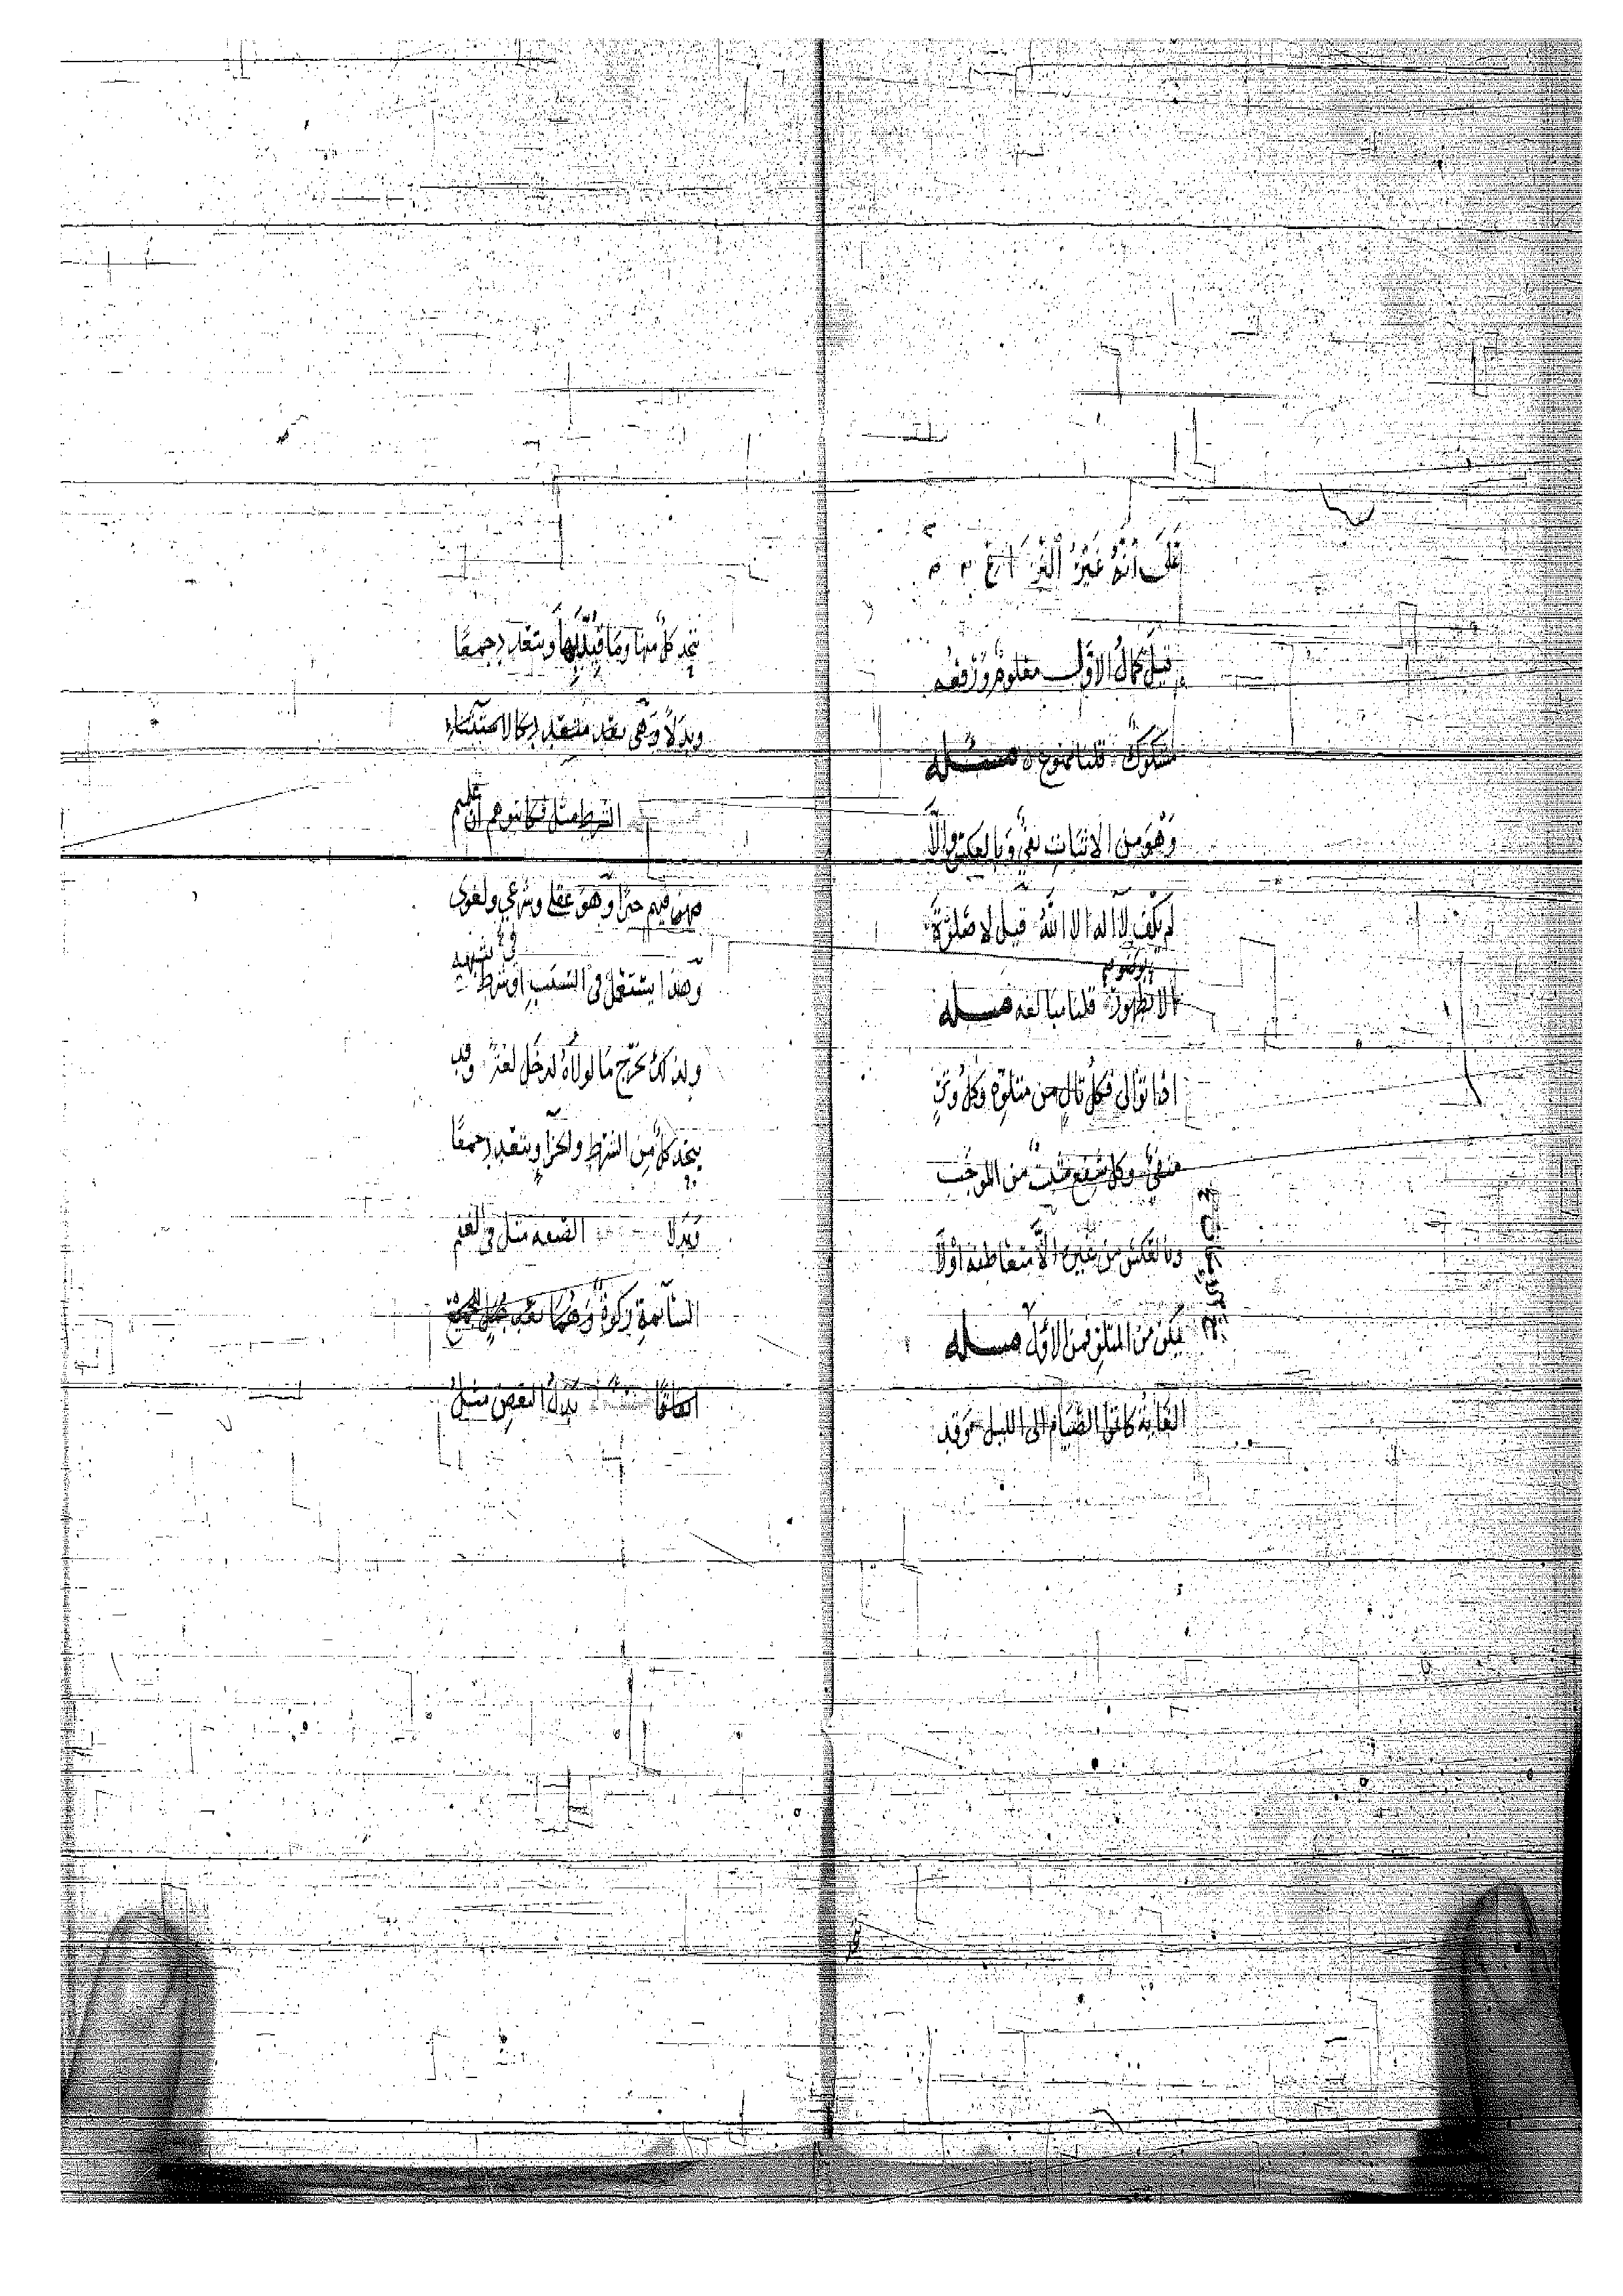 على أنه غير
قبل كمال الاول معلوم ورفعه
مشكوك قلنا ممنوع ه مسله
وهو من الاثبات نفي وبالعكس والا
لم يكف لا اله الا الله قيل لا صلوة
الا بطهور قلنا مبالغه مسله
اذا توالى فكل تال من متلوه وكل وتر
منفي وكل شفع مثبت من الموجب
وبالعكس من غيره الا متعاطفه او لا
يكن من المتلو فمن الاول مسله
الغايه كاتموا الصيام الى الليل وقد
يتحد كل منها وما قيد بها ويتعدد جمعا
وبدلا وهي بعد متعدد كالاستثناء
الشرط مثل فكاتبوهم ان علمتم
فيهم خيرا وهو عقلي وشرعي ولغوى
وهذا يستعمل في السبب او شرط
ولذلك يخرج ما لولاه لدخل لغة وقد
يتحد كل من الشرط والجزا ويتعدد جمعا
وبدلا الصفه مثل في الغنم
السائمة زكوة وهما بعد جمل للجميع
اتفاقا بدل البعض مثل